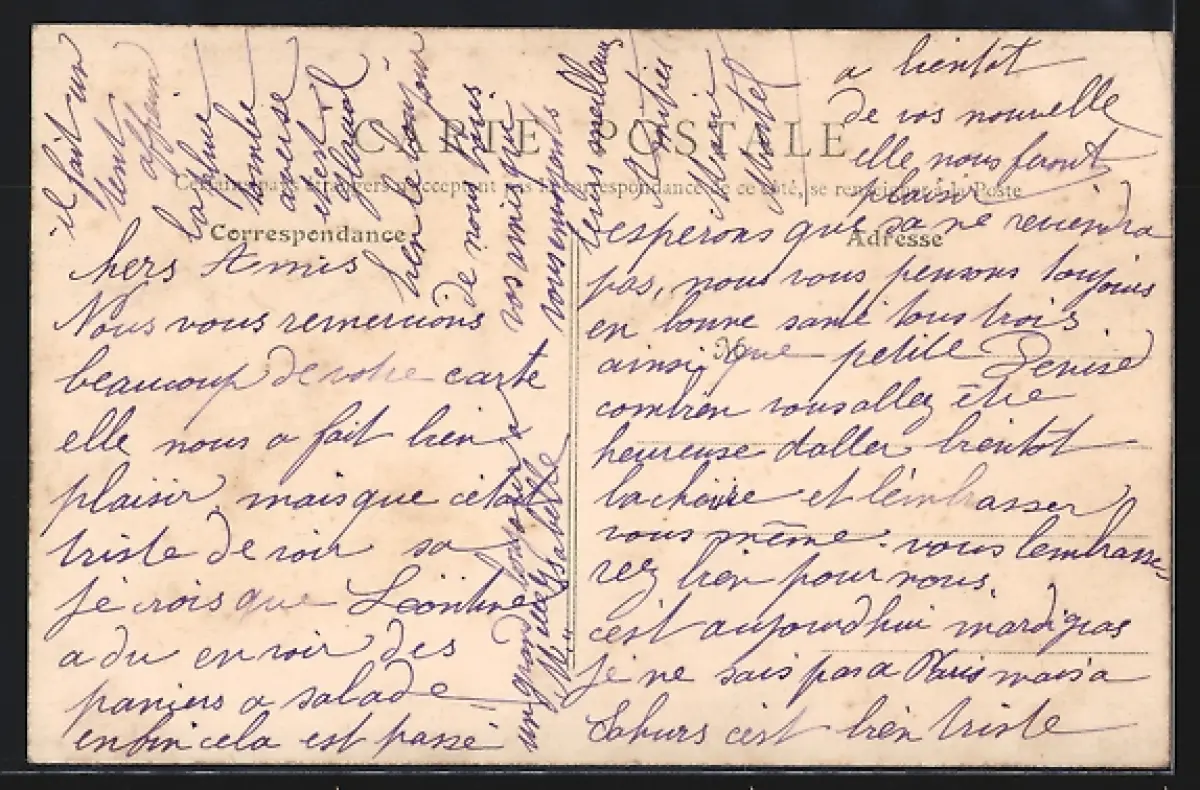 CARTE POSTALE
Certains pays étrangers n'acceptent pas la correspondance de ce côté, se renseigner à la Poste
Correspondance
Adresse
M
hers Amis
Nous vous remercions
beaucoup de votre carte
elle nous a fait bien
plaisir mais que cétait
triste de voir sa
je crois que Léontine
a du en voir des
paniers a salade
enfin cela est passé
esperons que sa ne reviendra
pas, nous vous pensons toujours
en bonne santé tous trois
ainsi que petite Denise
combien vous allez être
heureuse daller bientot
la choire et lembrasser
vous même. vous lembrasse-
rez bien pour nous.
cest aujourdhui mardi gras
je ne sais pas a Paris mais a
Sahurs cest bien triste
il fait un
vent
affreux
la pluie
tombe
averse
et est
glacial
bien le bonjour
de nous tous.
vos amis qui
vous envoyents
leurs meilleurs
Amitiés
Marie
Martel
a bientot
de vos nouvelle
elle nous feront
plaisir
un grand bonjour a
Mlle Isabelle